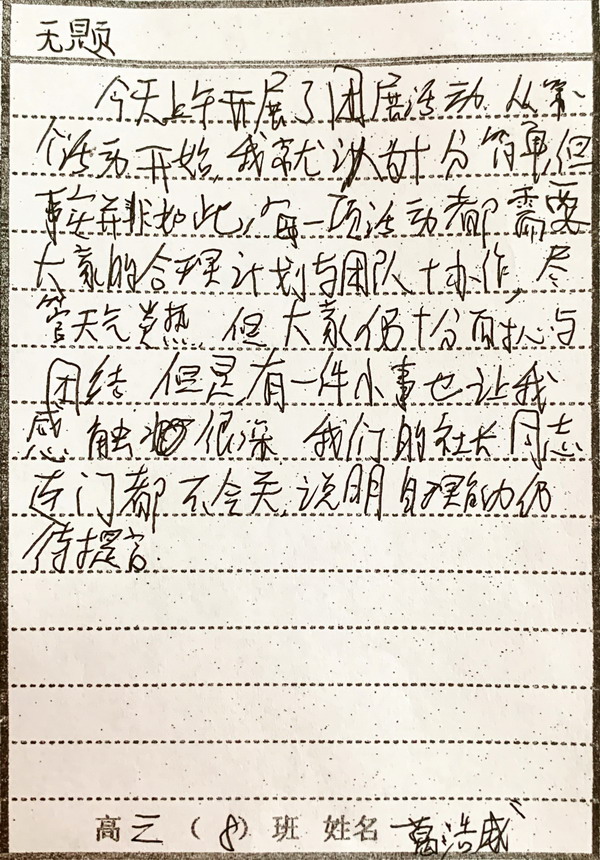 无题
今天上午开展了团展活动 从第一
个活动开始,我就认为十分简单,但
事实并非如此,每一项活动都需要
大家的合理计划与团队协作,尽
管天气炎热,但大家仍十分耐心与
团结 但是,有一件小事也让我
感触 很深 我们的社长同志
连门都不会关,说明自理能力仍
待提高
高三(8)班 姓名 葛浩成